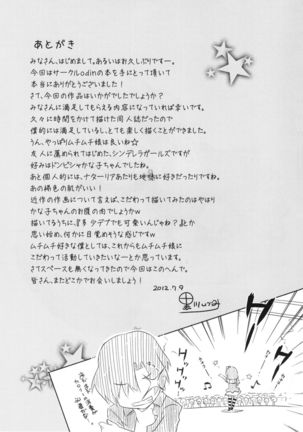 あとがき
みなさん、はじめまして。あるいはお久しぶりですー。
今回はサークルodinの本を手にとって頂いて
本当にありがとうございます！
さて、今回の作品はいかがでしたでしょうか？
みなさんに満足してもらえる内容になっていれば幸いです。
久々に時間をかけて描けた同人誌だったので
僕的には満足しているし、とても楽しく描くことができました。
うん、やっぱりムチムチ様は良いね☆
友人に薦められてはじめた、シンデレラガールズですが
好みはドンピシャかな子ちゃんでしたね。
あと個人的には、ナターリアあたりも地味に好きだったりですね。
あの褐色の肌がいい！
近作の作画について言えば、こだわって描いてみたのはやはり
かな子ちゃんのお腹の肉でしょうかw
描いてるうちに、『手タプタプでも可愛いんじゃね？』とか
思い始め、何かに目覚めそうな感じですw
ムチムチ好きな僕としては、これからもムチムチ様に
こだわって活動していきたいなーとか思っています。
さてスペースも無くなってきたので今回はこのへんで。
皆さん、またどこかでお会いしましょう！
2012.7.9